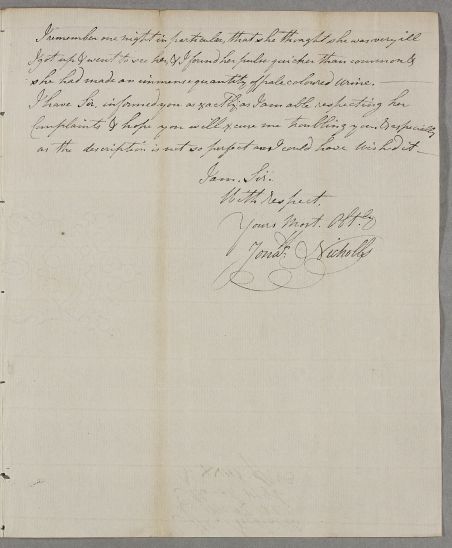 I remember one night in particular, that she thought she was very ill
I got up & went to see her, & I found her pulse quicker than common &
she had made an immense quantity of pale coloured urine. —
I have Sir, informed you as exactly as I am able respecting her
Complaints & hope you will excuse me troubling you, & especially
as the description is not so perfect as I could have wish'd it —
I am. Sir.
With respect.
Yours Most. Obt.ly
Jonan. Nicholls